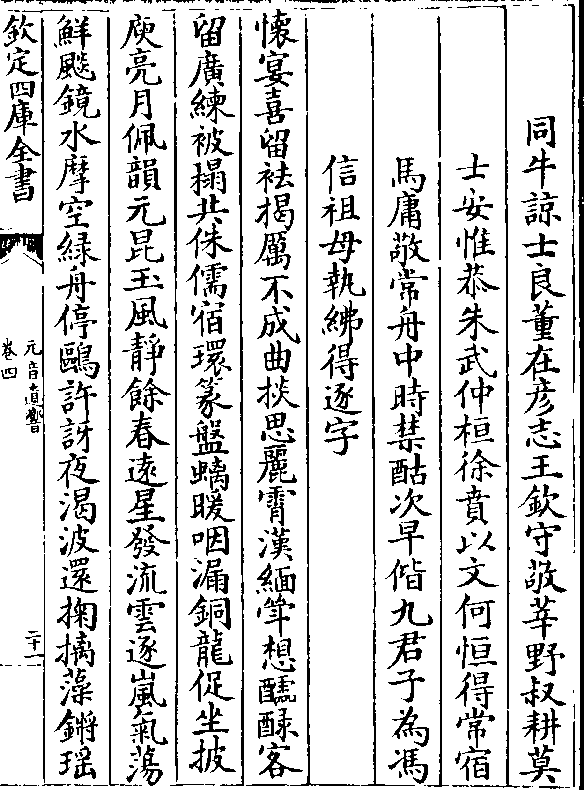 同牛諒士良董在彦志王欽守敬莘野叔耕莫
士安惟恭朱武仲桓徐賁以文何恒得常宿
馬庸敬常舟中時禁酤次早偕九君子為馮
信祖母執紼得逐字
懐宴喜留袪揭厲不成曲掞思麗霄漢緬竿想醹醁客
留廣練被搨共侏儒宿環篆盤螭暖咽漏銅龍促坐披
庾亮月佩韻元昆玉風靜餘春逺星發流雲逐嵐氣蕩
鮮颷鏡水摩空緑舟停鷗許訝夜渴波還掬摛藻鏘瑶
欽定四庫全書
元音遺響
卷四
二十一